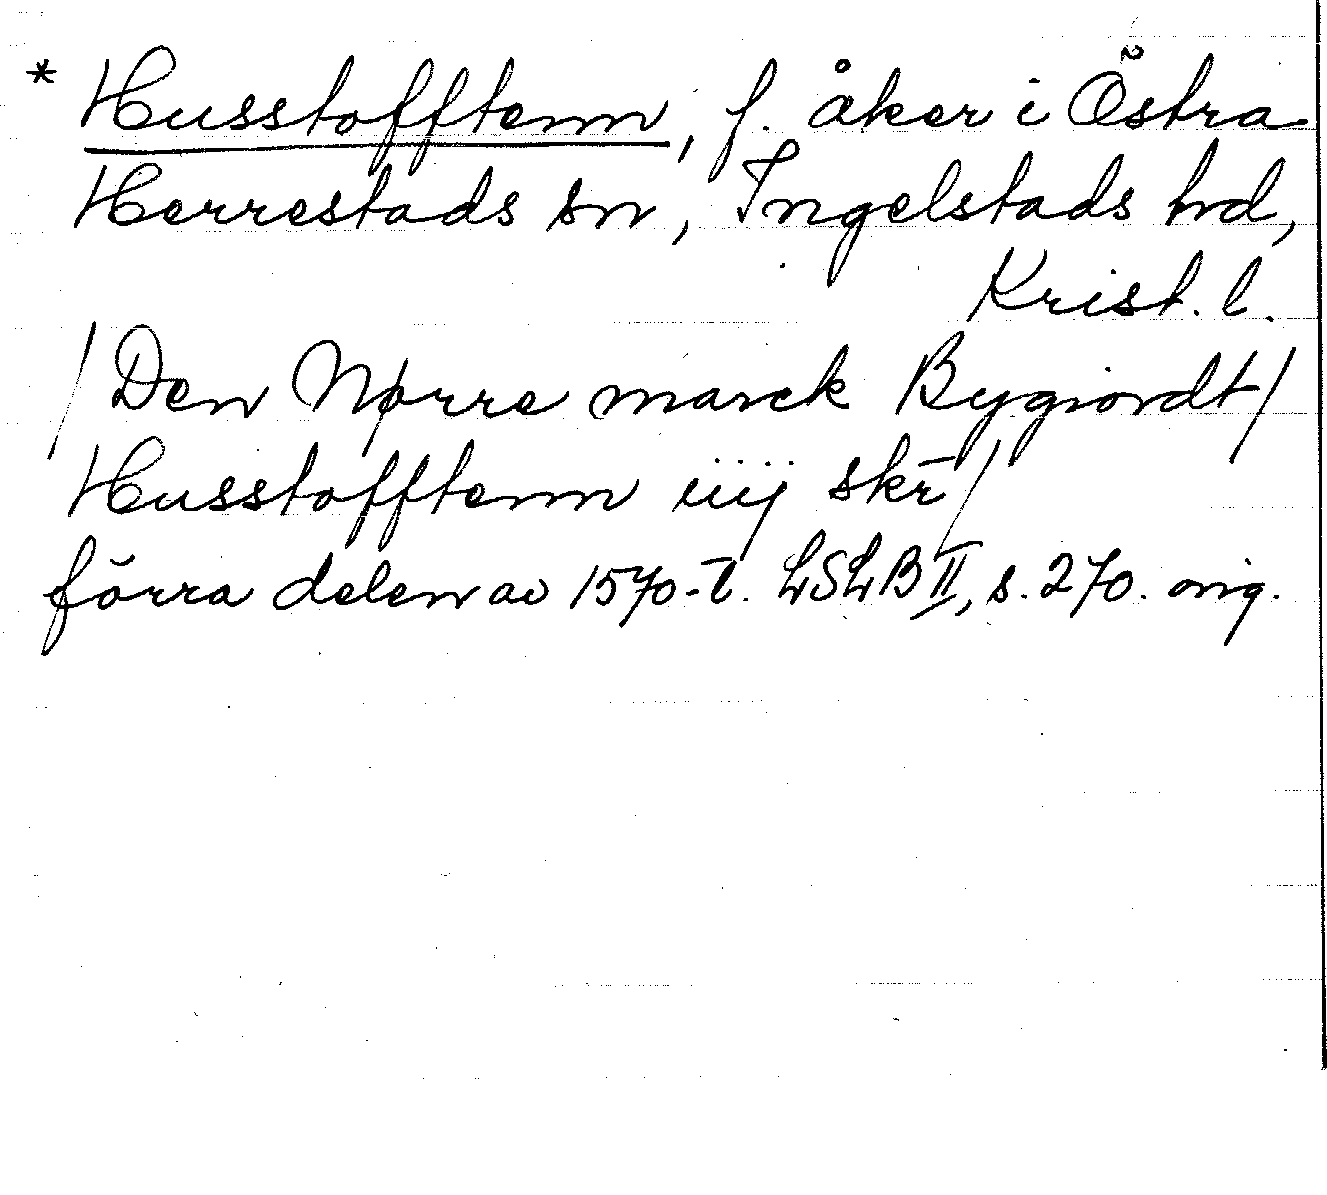 * Husstofftenn, f. åker i Östra
Herrestads sn, Ingelstads hd,
Krist. l.
/Den Nørre marck Bygiordt/
Husstofftenn iiij skr̄/
förra delen av 1570-t. LSLB II, s. 270. orig.